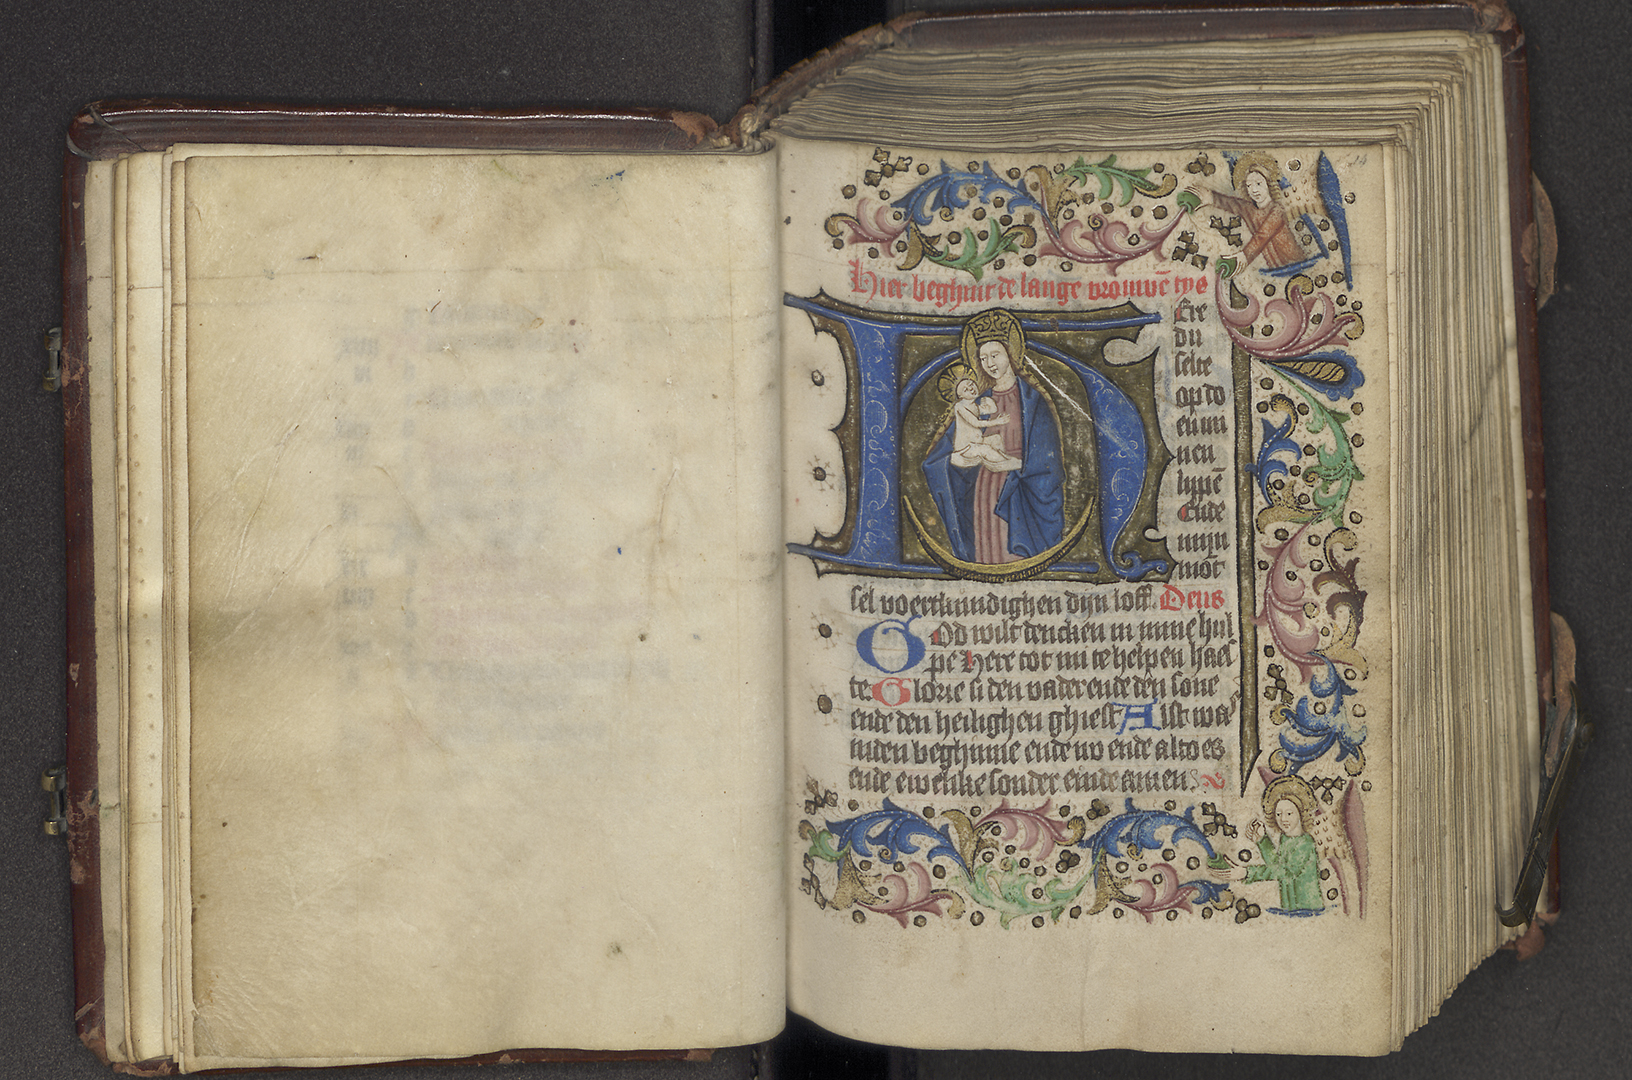 Hier beghint de lange vrouwē tyd
HEre
du
selte
op do
en mi
nen
lippē
Ende
mijn
mōt
sel voertkundighen dijn loff. Deus
God wilt dencken in mine hul
pe Here tot mi te helpen hael
te. Glorie si den vader ende den sone
ende den heilighen ghiest Alst was
inden beghinne ende nv ende altoes
ende ewelike sonder einde amen.